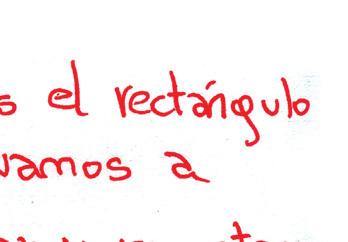 s el rectángulo
vamos a